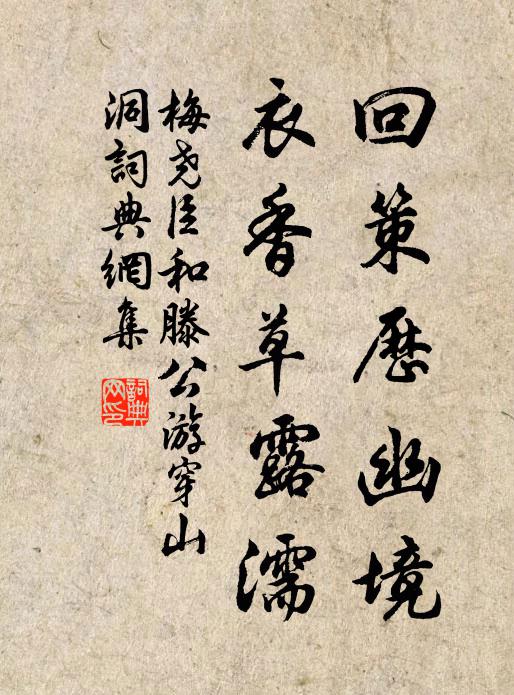 回策歷幽境
衣香草露濡
梅尧臣和滕公游穿山
洞詞典網集
詞典網印